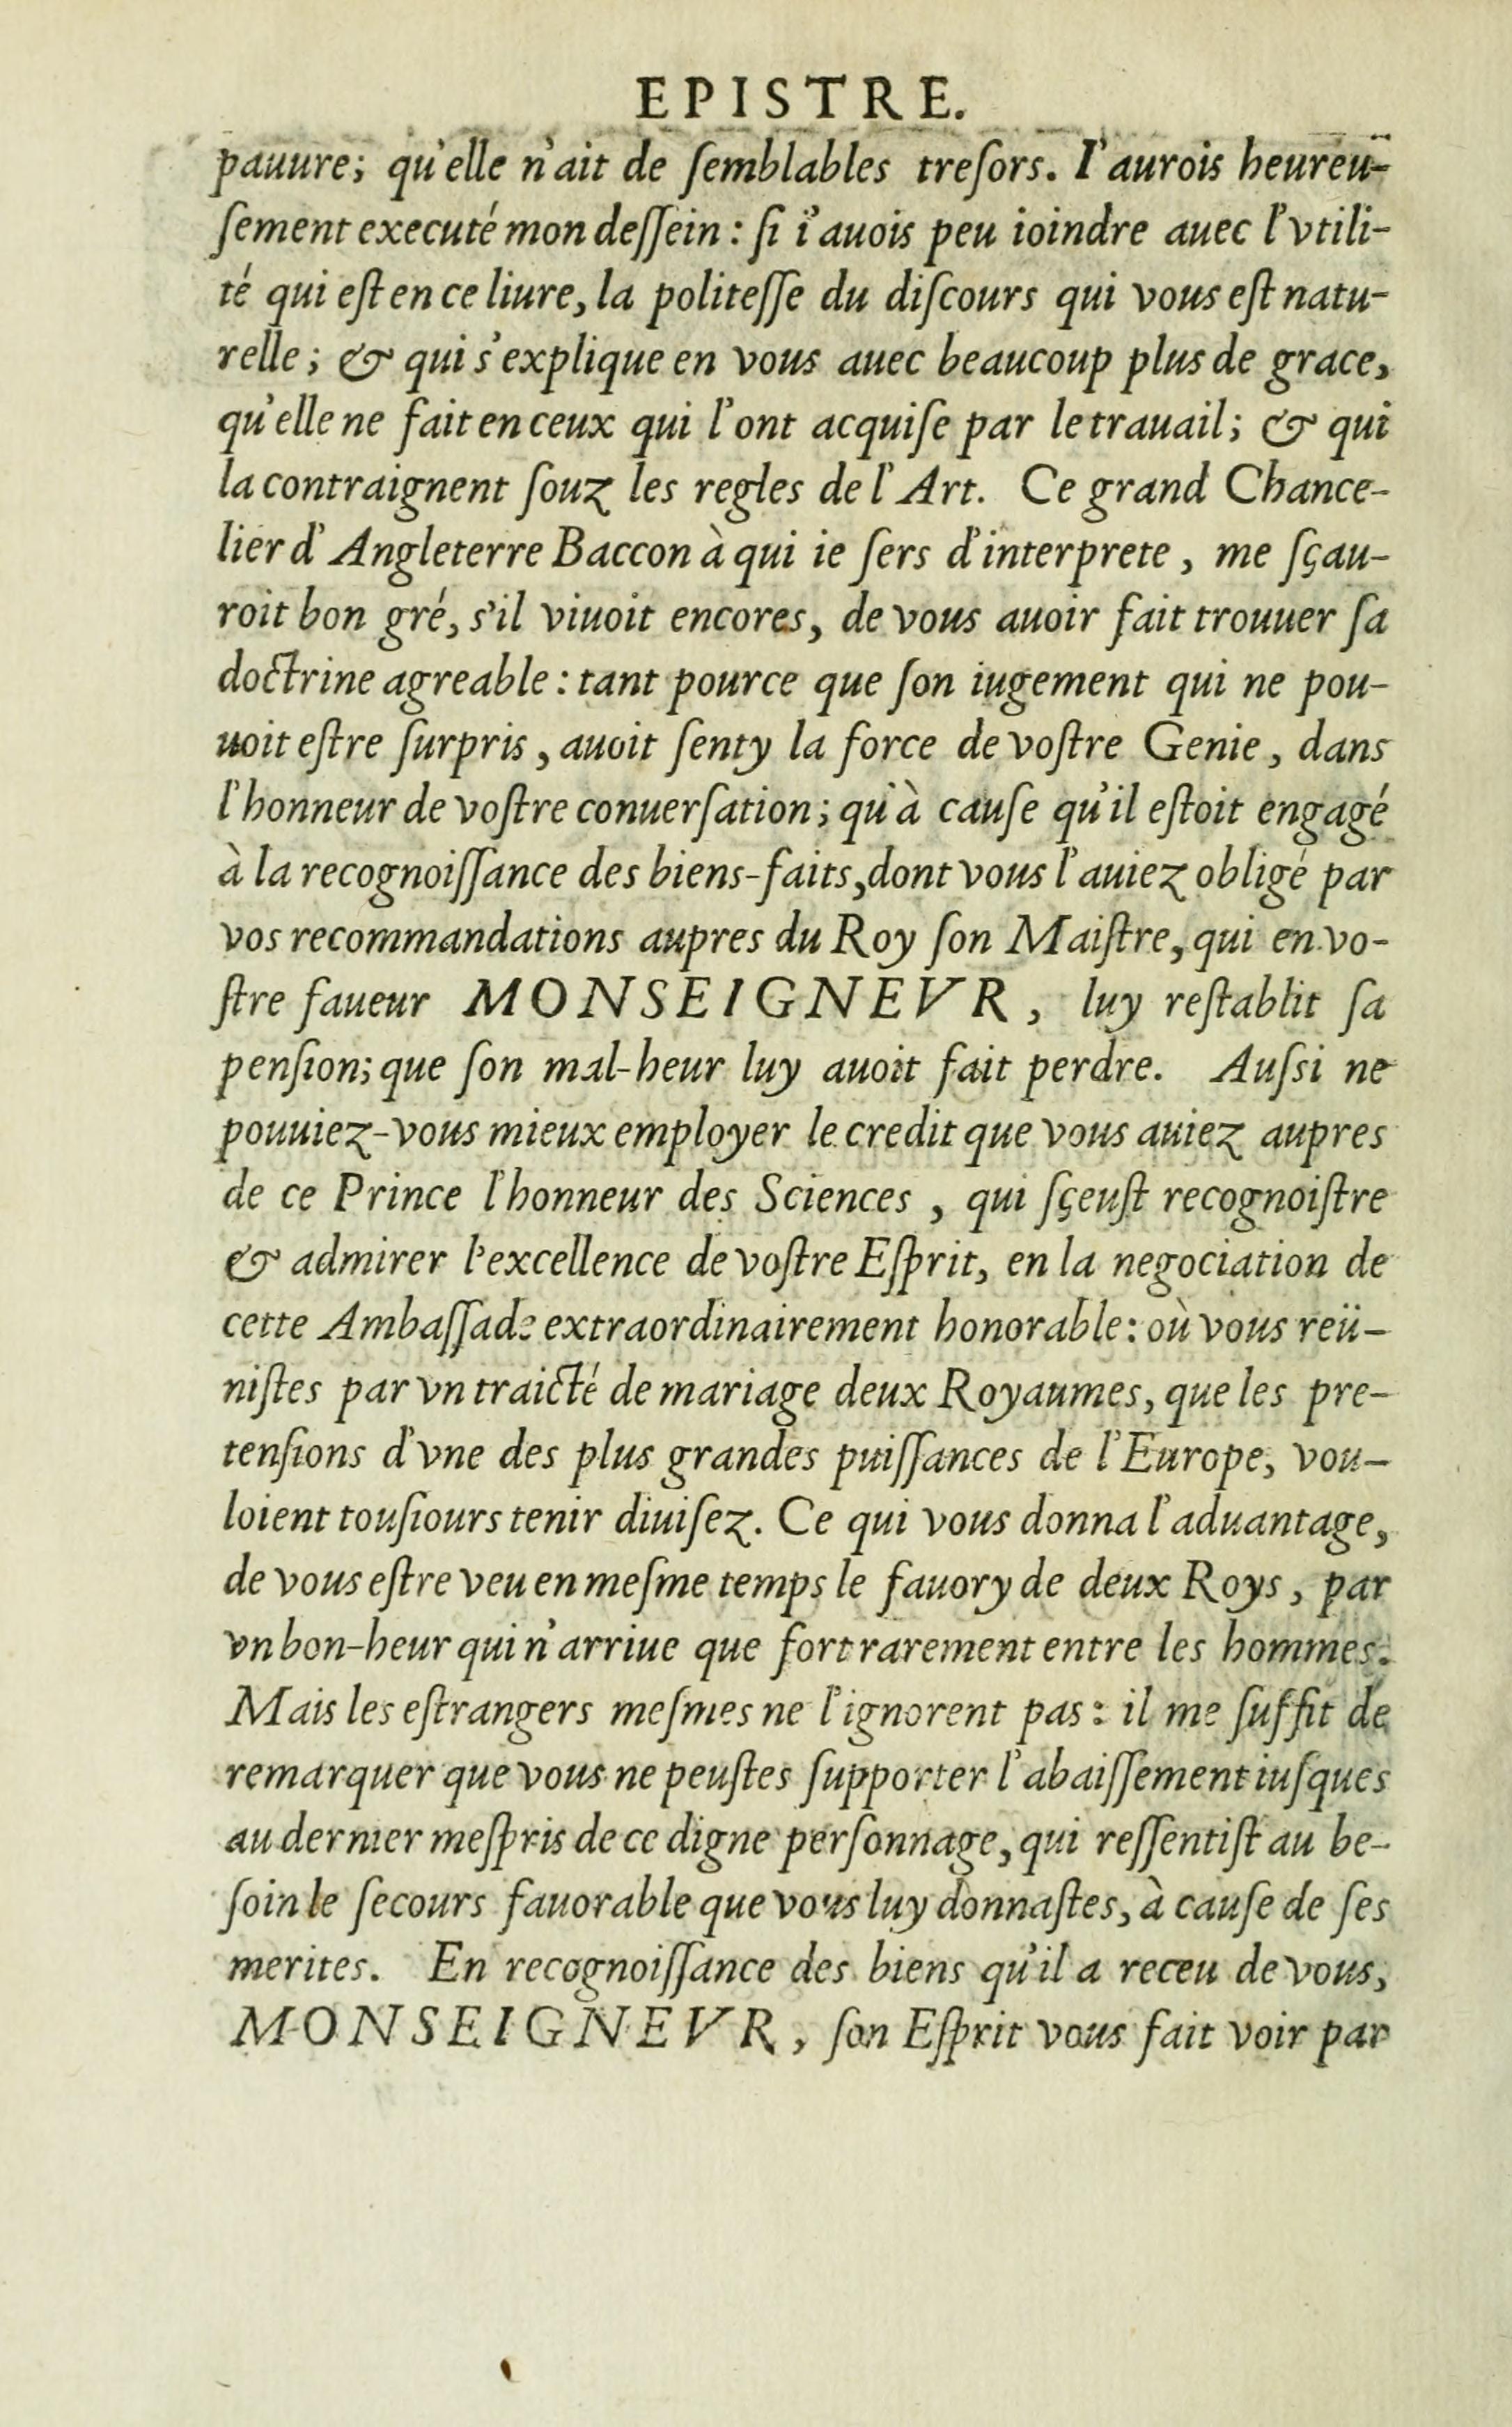 EPISTRE.
pauure; qu'elle n'ait de ſemblables treſors. I'aurois heureu-
ſement executé mon deſſein : ſi i'auois peu ioindre auec l'vtili-
té qui eſt en ce liure, la politeſſe du diſcours qui vous eſt natu-
relle ; & qui s'explique en vous auec beaucoup plus de grace,
qu'elle ne fait en ceux qui l'ont acquiſe par le trauail ; & qui
la contraignent ſouz les regles de l'Art. Ce grand Chance-
lier d'Angleterre Baccon à qui ie ſers d'interprete, me ſçau-
roit bon gré, s'il viuoit encores, de vous auoir fait trouuer ſa
doctrine agreable : tant pource que ſon iugement qui ne pou-
uoit eſtre ſurpris, auoit ſenty la force de voſtre Genie, dans
l'honneur de voſtre conuerſation ; qu'à cauſe qu'il eſtoit engagé
à la recognoiſſance des biens-faits, dont vous l'auiez obligé par
vos recommandations aupres du Roy ſon Maiſtre, qui en vo-
ſtre faueur MONSEIGNEVR, luy reſtablit ſa
penſion; que ſon mal-heur luy auoit fait perdre. Auſsi ne
pouuiez-vous mieux employer le credit que vous auiez aupres
de ce Prince l'honneur des Sciences, qui ſçeuſt recognoiſtre
& admirer l'excellence de voſtre Eſprit, en la negociation de
cette Ambaſſade extraordinairement honorable : où vous reü-
niſtes par vn traicté de mariage deux Royaumes, que les pre-
tenſions d'vne des plus grandes puiſſances de l'Europe, vou-
loient touſiours tenir diuiſez. Ce qui vous donna l'aduantage,
de vous eſtre veu en meſme temps le fauory de deux Roys, par
vn bon-heur qui n'arriue que fort rarement entre les hommes.
Mais les eſtrangers meſmes ne l'ignorent pas : il me ſuffit de
remarquer que vous ne peuſtes ſupporter l'abaiſſement iuſques
au dernier meſpris de ce digne perſonnage, qui reſſentiſt au be-
ſoin le ſecours fauorable que vous luy donnaſtes, à cauſe de ſes
merites. En recognoiſſance des biens qu'il a receu de vous,
MONSEIGNEVR, ſon Eſprit vous fait voir par